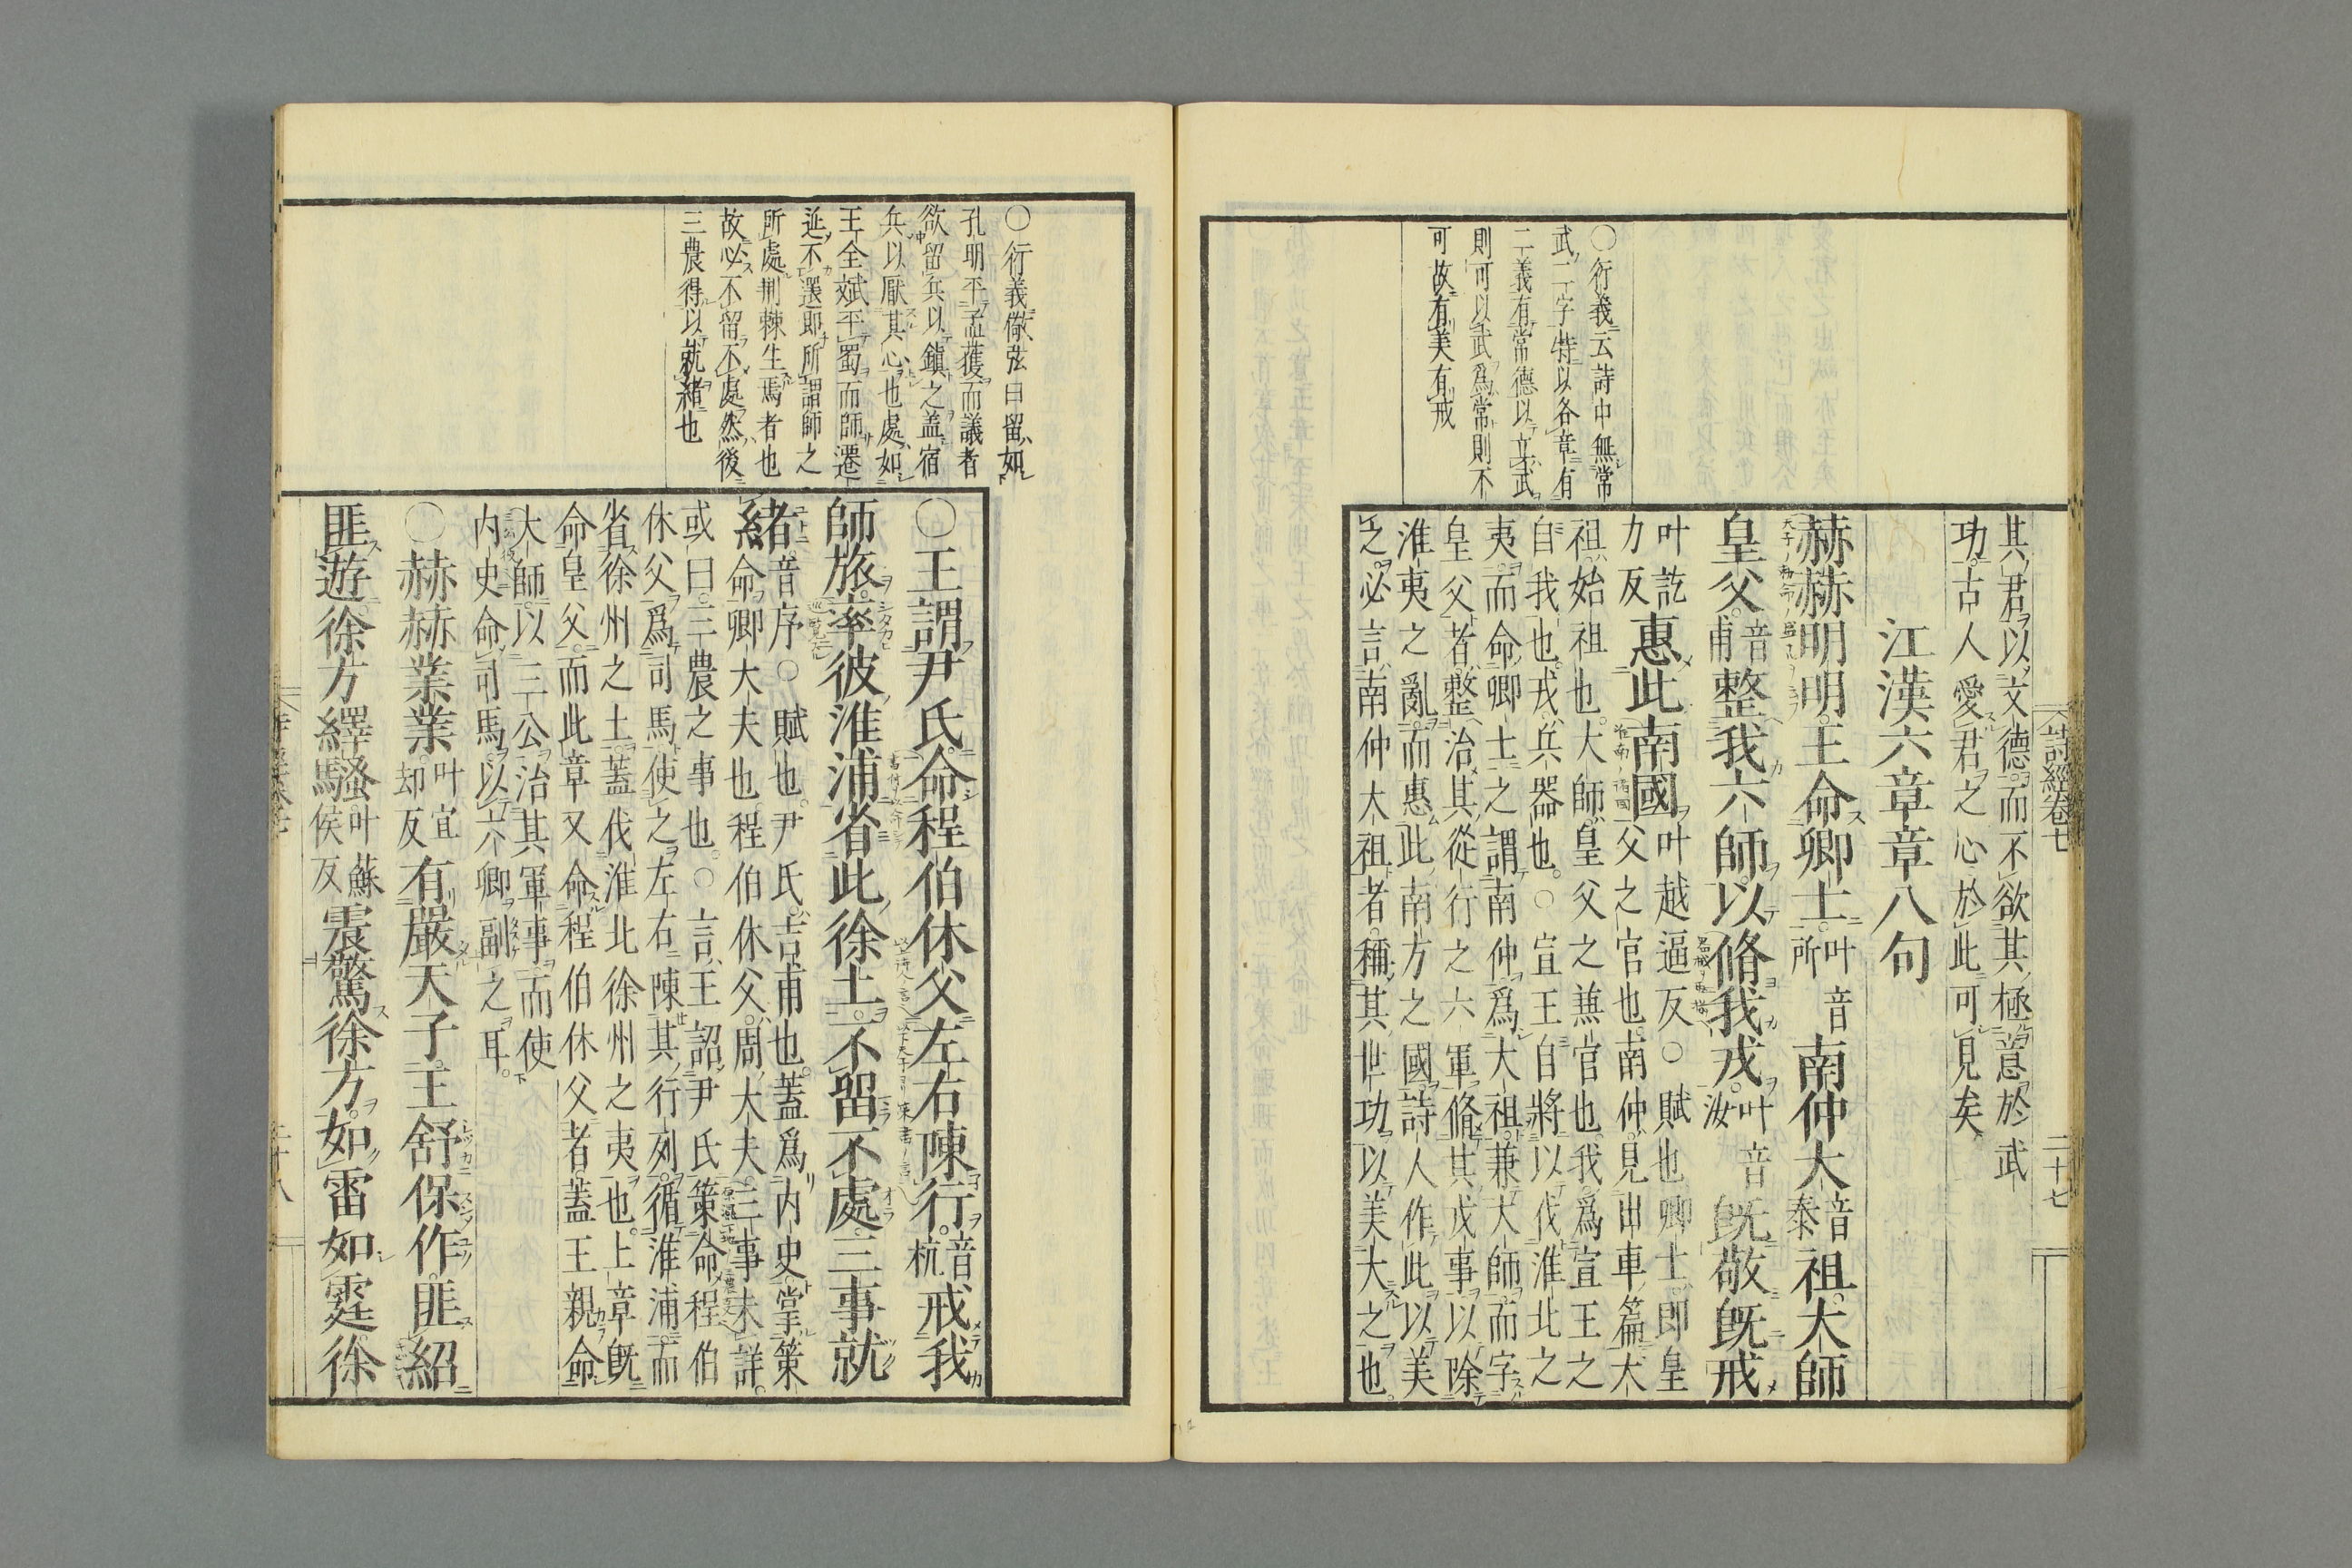 詩經卷七
二十七
其君以文德而不欲其極意於武
功古人愛君之心於此可見矣
江漢六章章八句
赫赫明明王命卿士叶音所南仲大音泰祖大師
皇父音甫整我六師以脩我戎叶音汝既敬既戒
叶訖力反惠此南國叶越逼反○賦也卿士即皇
父之官也南仲見出車篇大
祖始祖也大師皇父之兼官也我爲宣王之
自我也戎兵器也○宣王自將以伐淮北之
夷而命卿士之謂南仲爲大祖兼大師而字
皇父者整治其從行之六軍脩其戎事以除
淮夷之亂而惠此南方之國詩人作此以美
之必言南仲大祖者稱其世功以美大之也
○衍義云詩中無常
武二字特以各章有
二義有常德以立武
則可以武爲常則不
可故有美有戒
○王謂尹氏命程伯休父左右陳行音杭戒我
師旅率彼淮浦省此徐土不留不處三事就
緒音序○賦也尹氏吉甫也蓋爲内史掌策
命卿大夫也程伯休父周大夫三事未詳
或曰三農之事也○言王詔尹氏策命程伯
休父爲司馬使之左右陳其行列循淮浦而
省徐州之土蓋伐淮北徐州之夷也上章既
命皇父而此章又命程伯休父者蓋王親命
大師以三公治其軍事而使
内史命司馬以六卿副之耳
○赫赫業業叶宜却反有嚴天子王舒保作匪紹
匪遊徐方繹騷叶蘇侯反震驚徐方如雷如霆徐
○衍義儆弦曰留如
孔明平孟獲而議者
欲留兵以鎮之蓋宿
兵以厭其心也處如
王全斌平蜀而師遷
延不還即所謂師之
所處荆棘生焉者也
故必不留不處然後
三農得以就緒也
二十八